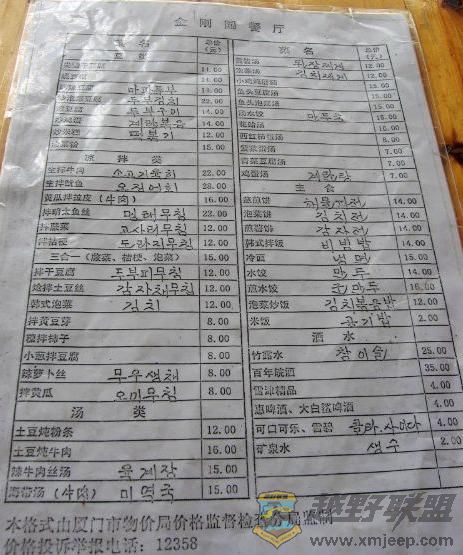 金刚圆餐厅
菜名 总价(元)
14.00
22.00
마파두부 14.00
두부김치 22.00
두부구이 14.00
계란볶음 14.00
炒米糕 떡볶기 12.00
15.00
凉拌类
生拌牛肉 소고기육회 22.00
生拌鱿鱼 오징어회 28.00
黄瓜拌拉皮(牛肉) 16.00
拌明太鱼丝 명태무침 22.00
拌蕨菜 고사리무침 12.00
拌桔梗 도라지무침 12.00
三合一(蕨菜、桔梗、泡菜) 15.00
拌干豆腐 두부피무침 12.00
炝拌土豆丝 감자채무침 12.00
韩式泡菜 김치 12.00
拌黄豆芽 8.00
糖拌柿子 8.00
小葱拌豆腐 8.00
辣萝卜丝 무우생채 8.00
拌黄瓜 오이무침 8.00
汤类
土豆炖粉条 12.00
土豆炖牛肉 16.00
辣牛肉丝汤 육계장 15.00
海带汤(牛肉) 미역국 15.00
菜名 总价(元)
大酱汤 된장찌개 12.00
泡菜汤 김치찌개 12.00
15.00
鱼头豆腐汤 15.00
鱼头泡菜汤 15.00
汤水饺 만두국 15.00
花蛤汤 15.00
西红柿蛋汤 12.00
紫菜蛋汤 12.00
青菜豆腐汤 7.00
鸡蛋汤 계란탕 7.00
主食
葱煎饼 해물파전 14.00
泡菜饼 김치전 14.00
煎薯饼 감자전 14.00
韩式拌饭 비빔밥 14.00
冷面 냉면 15.00
水饺 만두 14.00
煎水饺 군만두 16.00
泡菜炒饭 김치볶음밥 12.00
米饭 공기밥 2.00
酒水
竹露水 참이슬 25.00
百年皖酒 35.00
雪津精品 4.00
惠啤酒、大白鲨啤酒 4.00
可口可乐、雪碧 콜라.사이다 4.00
矿泉水 생수 2.00
本格式由厦门市物价局价格监督检查分局监制
价格投诉举报电话:12358
越野联盟
www.xmjeep.com